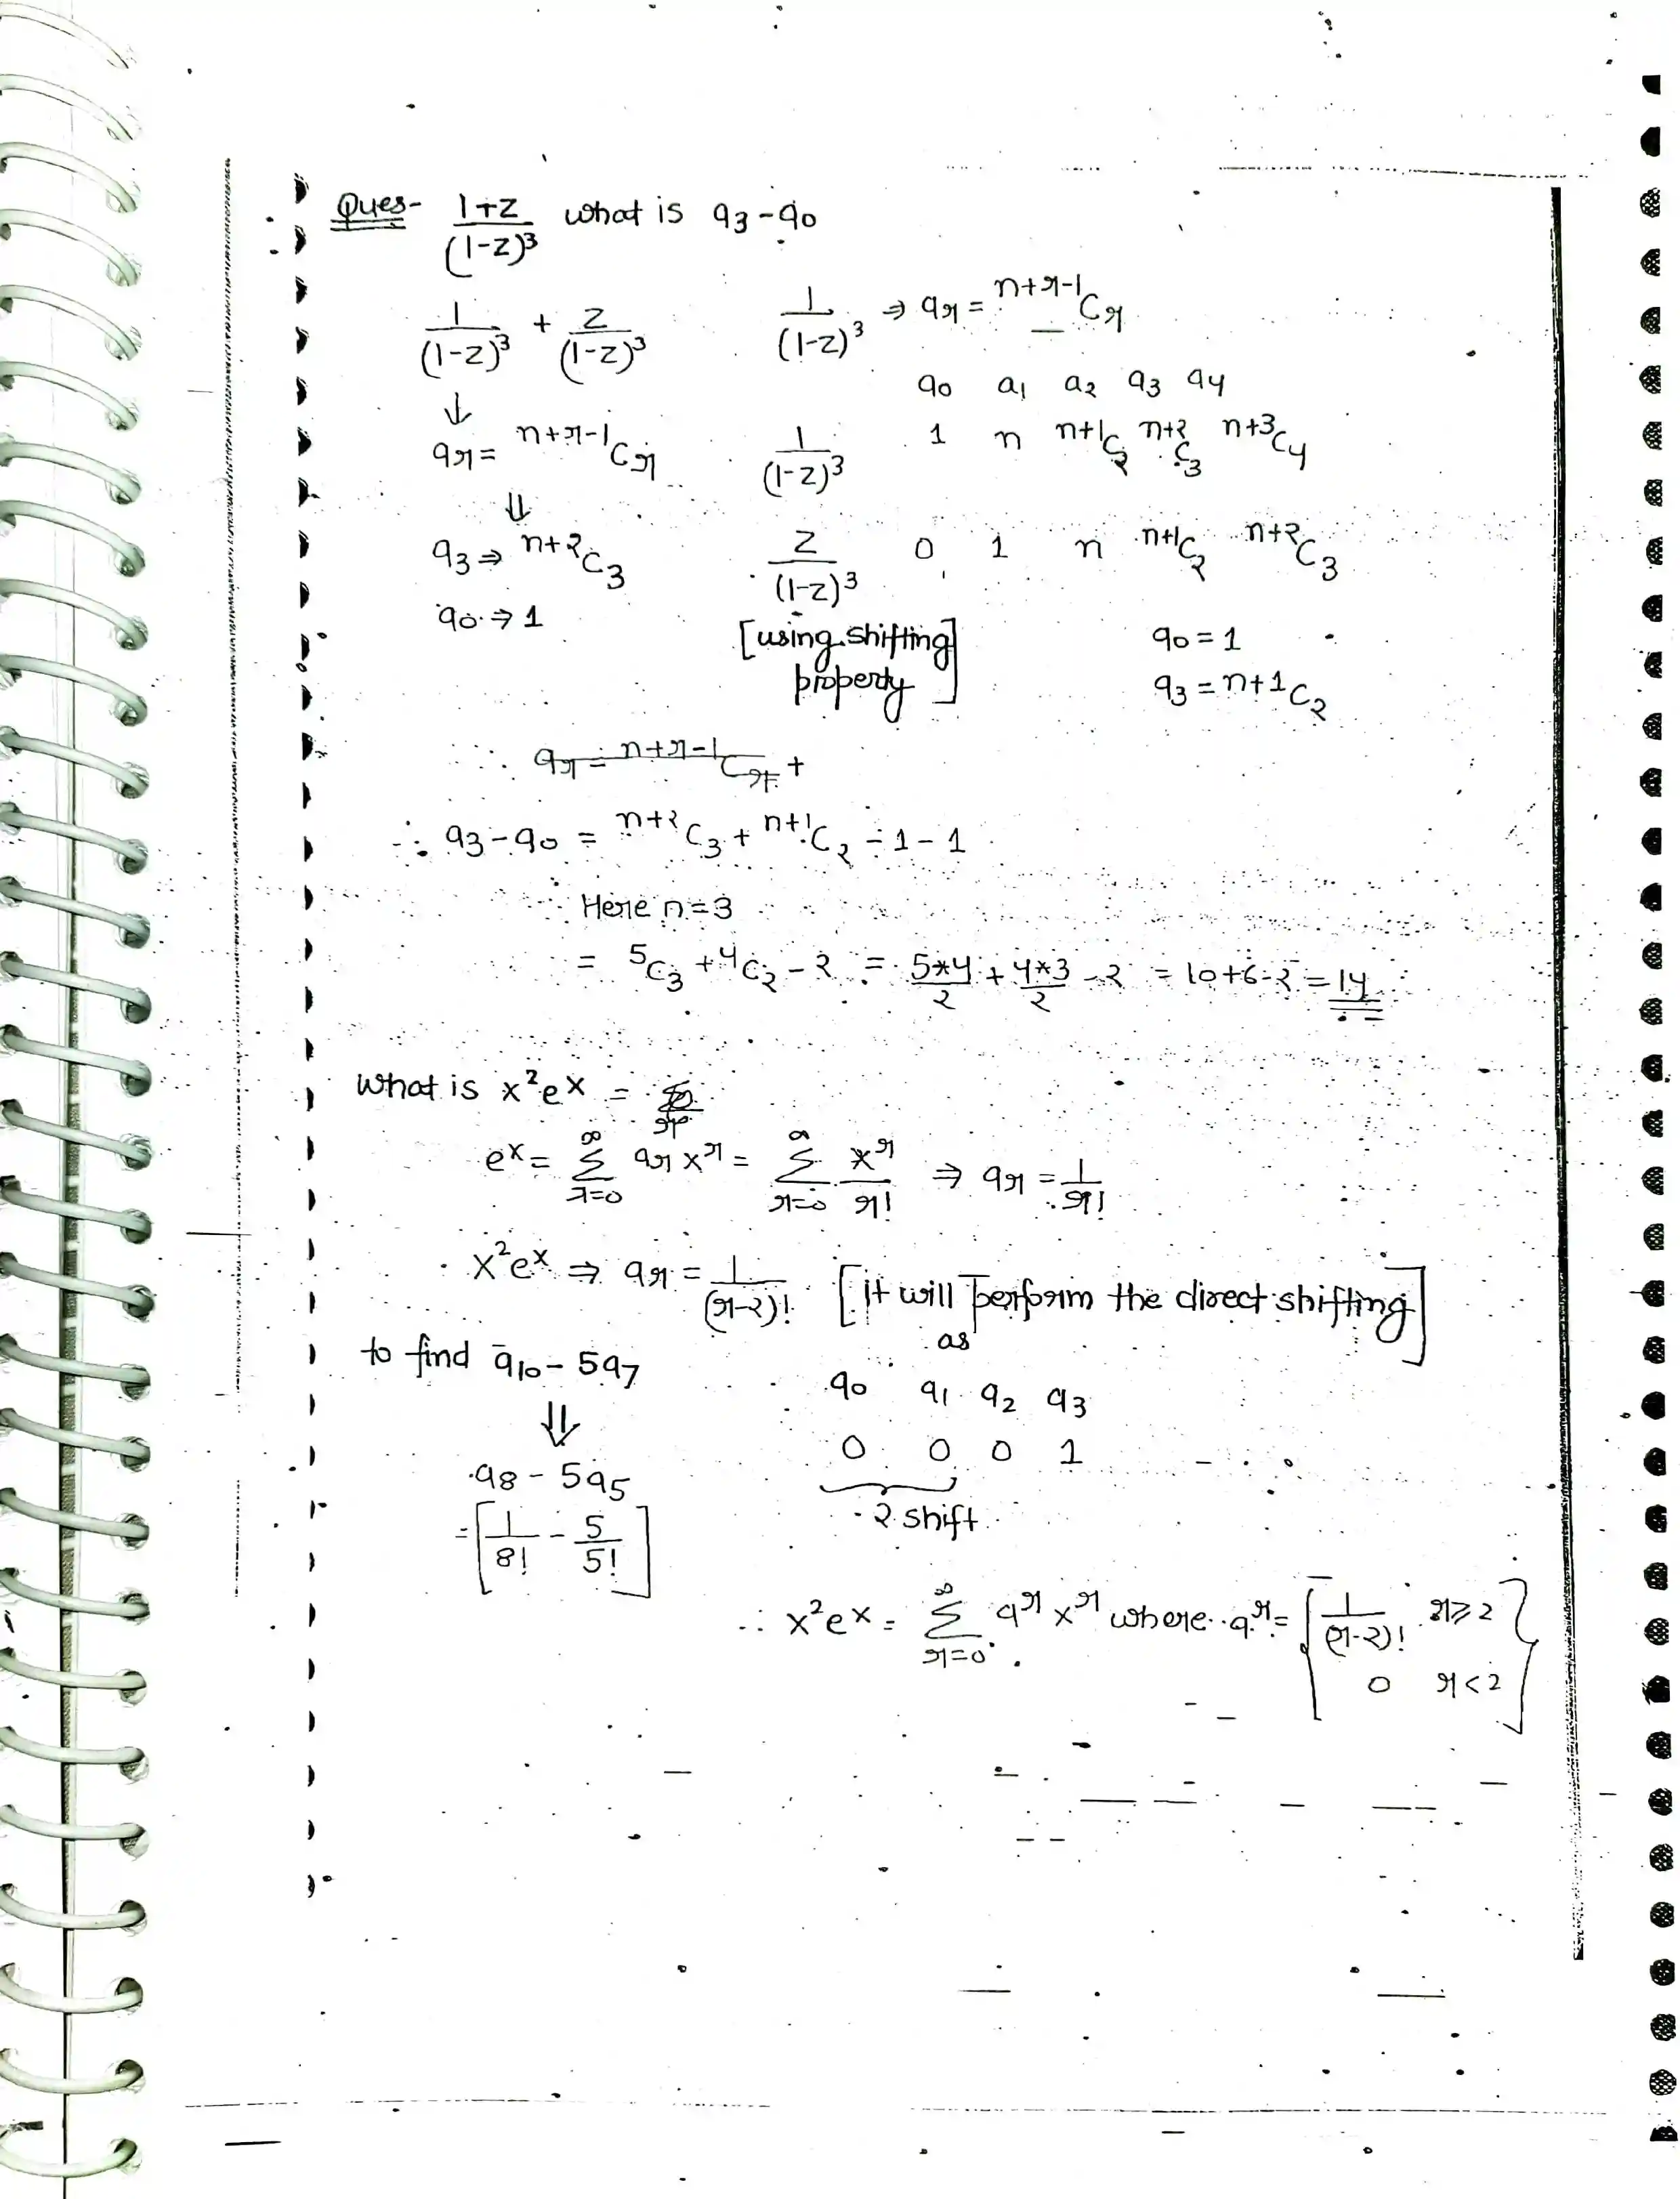 Ques- (1+z)/(1-z)³ what is a₃-a₀
1/(1-z)³ + z/(1-z)³
↓
aᵣ = ⁿ⁺ʳ⁻¹Cᵣ
⇓
a₃ ⇒ ⁿ⁺²C₃
a₀ ⇒ 1
1/(1-z)³ ⇒ aᵣ = ⁿ⁺ʳ⁻¹Cᵣ
a₀ a₁ a₂ a₃ a₄
1/(1-z)³ 1 n ⁿ⁺¹C₂ ⁿ⁺²C₃ ⁿ⁺³C₄
z/(1-z)³ 0 1 n ⁿ⁺¹C₂ ⁿ⁺²C₃
[using shifting
property]
a₀ = 1
a₃ = ⁿ⁺¹C₂
aᵣ = ⁿ⁺ʳ⁻¹Cᵣ +
∴ a₃-a₀ = ⁿ⁺²C₃ + ⁿ⁺¹C₂ - 1 - 1
Here n=3
= ⁵C₃ + ⁴C₂ - 2 = 5*4/2 + 4*3/2 - 2 = 10+6-2 = 14
what is x²eˣ =
eˣ = ∞Σr=0 aᵣ xʳ = ∞Σr=0 xʳ/r! ⇒ aᵣ = 1/r!
x²eˣ ⇒ aᵣ = 1/(r-2)! [It will perform the direct shifting]
as
to find a₁₀ - 5a₇
⇓
a₈ - 5a₅
= [1/8! - 5/5!]
a₀ a₁ a₂ a₃
0 0 0 1 -
2 shift
∴ x²eˣ = ∞Σr=0 aʳ xʳ where aʳ = [1/(r-2)! r≥2
0 r<2}